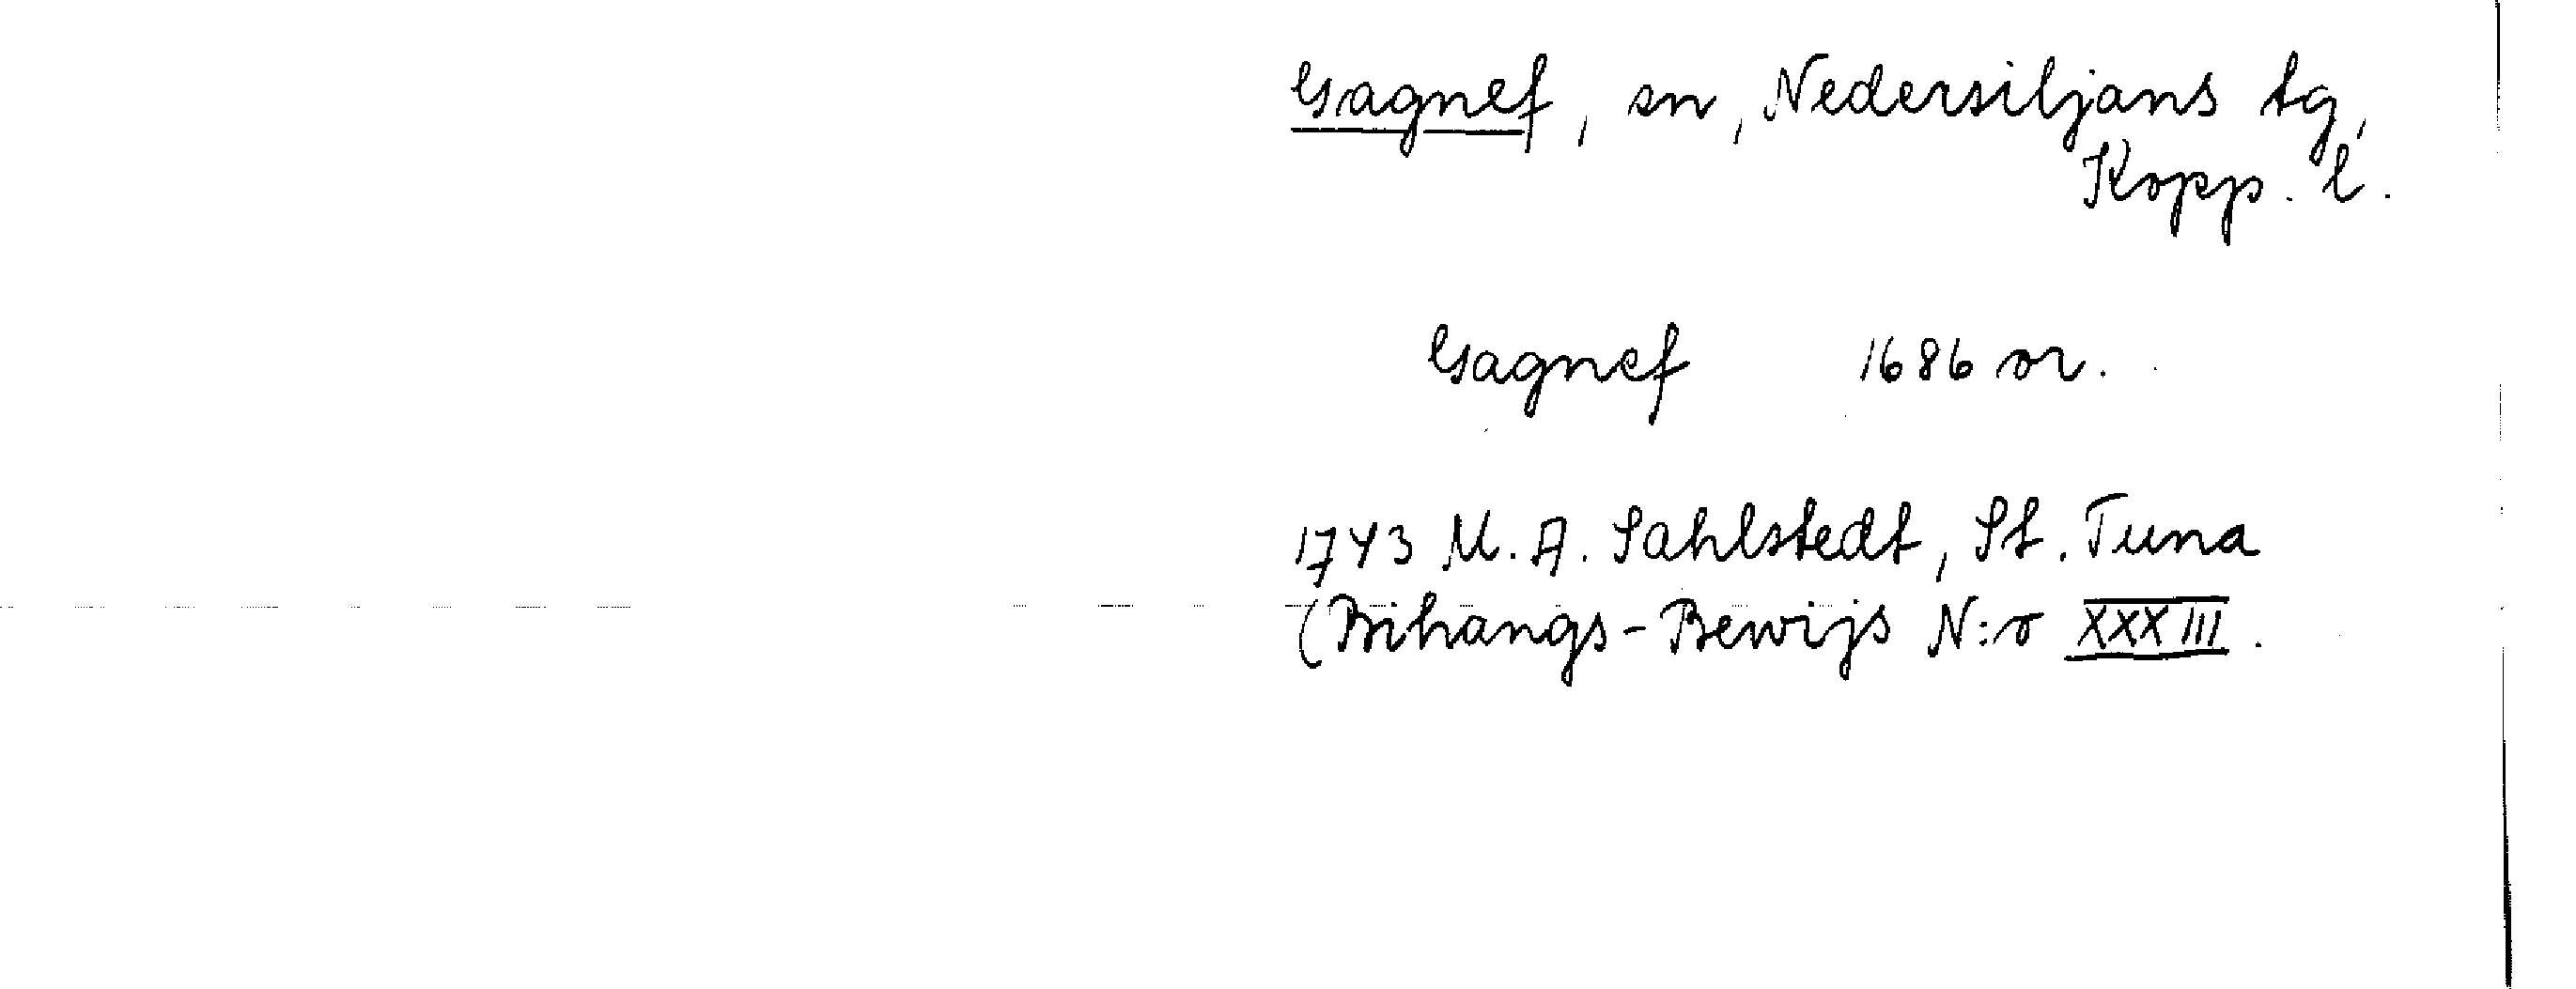 Gagnef, sn, Nedersiljans tg,
Kopp. l.
Gagnef 1686 or.
1743 M. A. Sahlstedt, St. Tuna
(Bihangs-Bewijs N:o XXXIII.